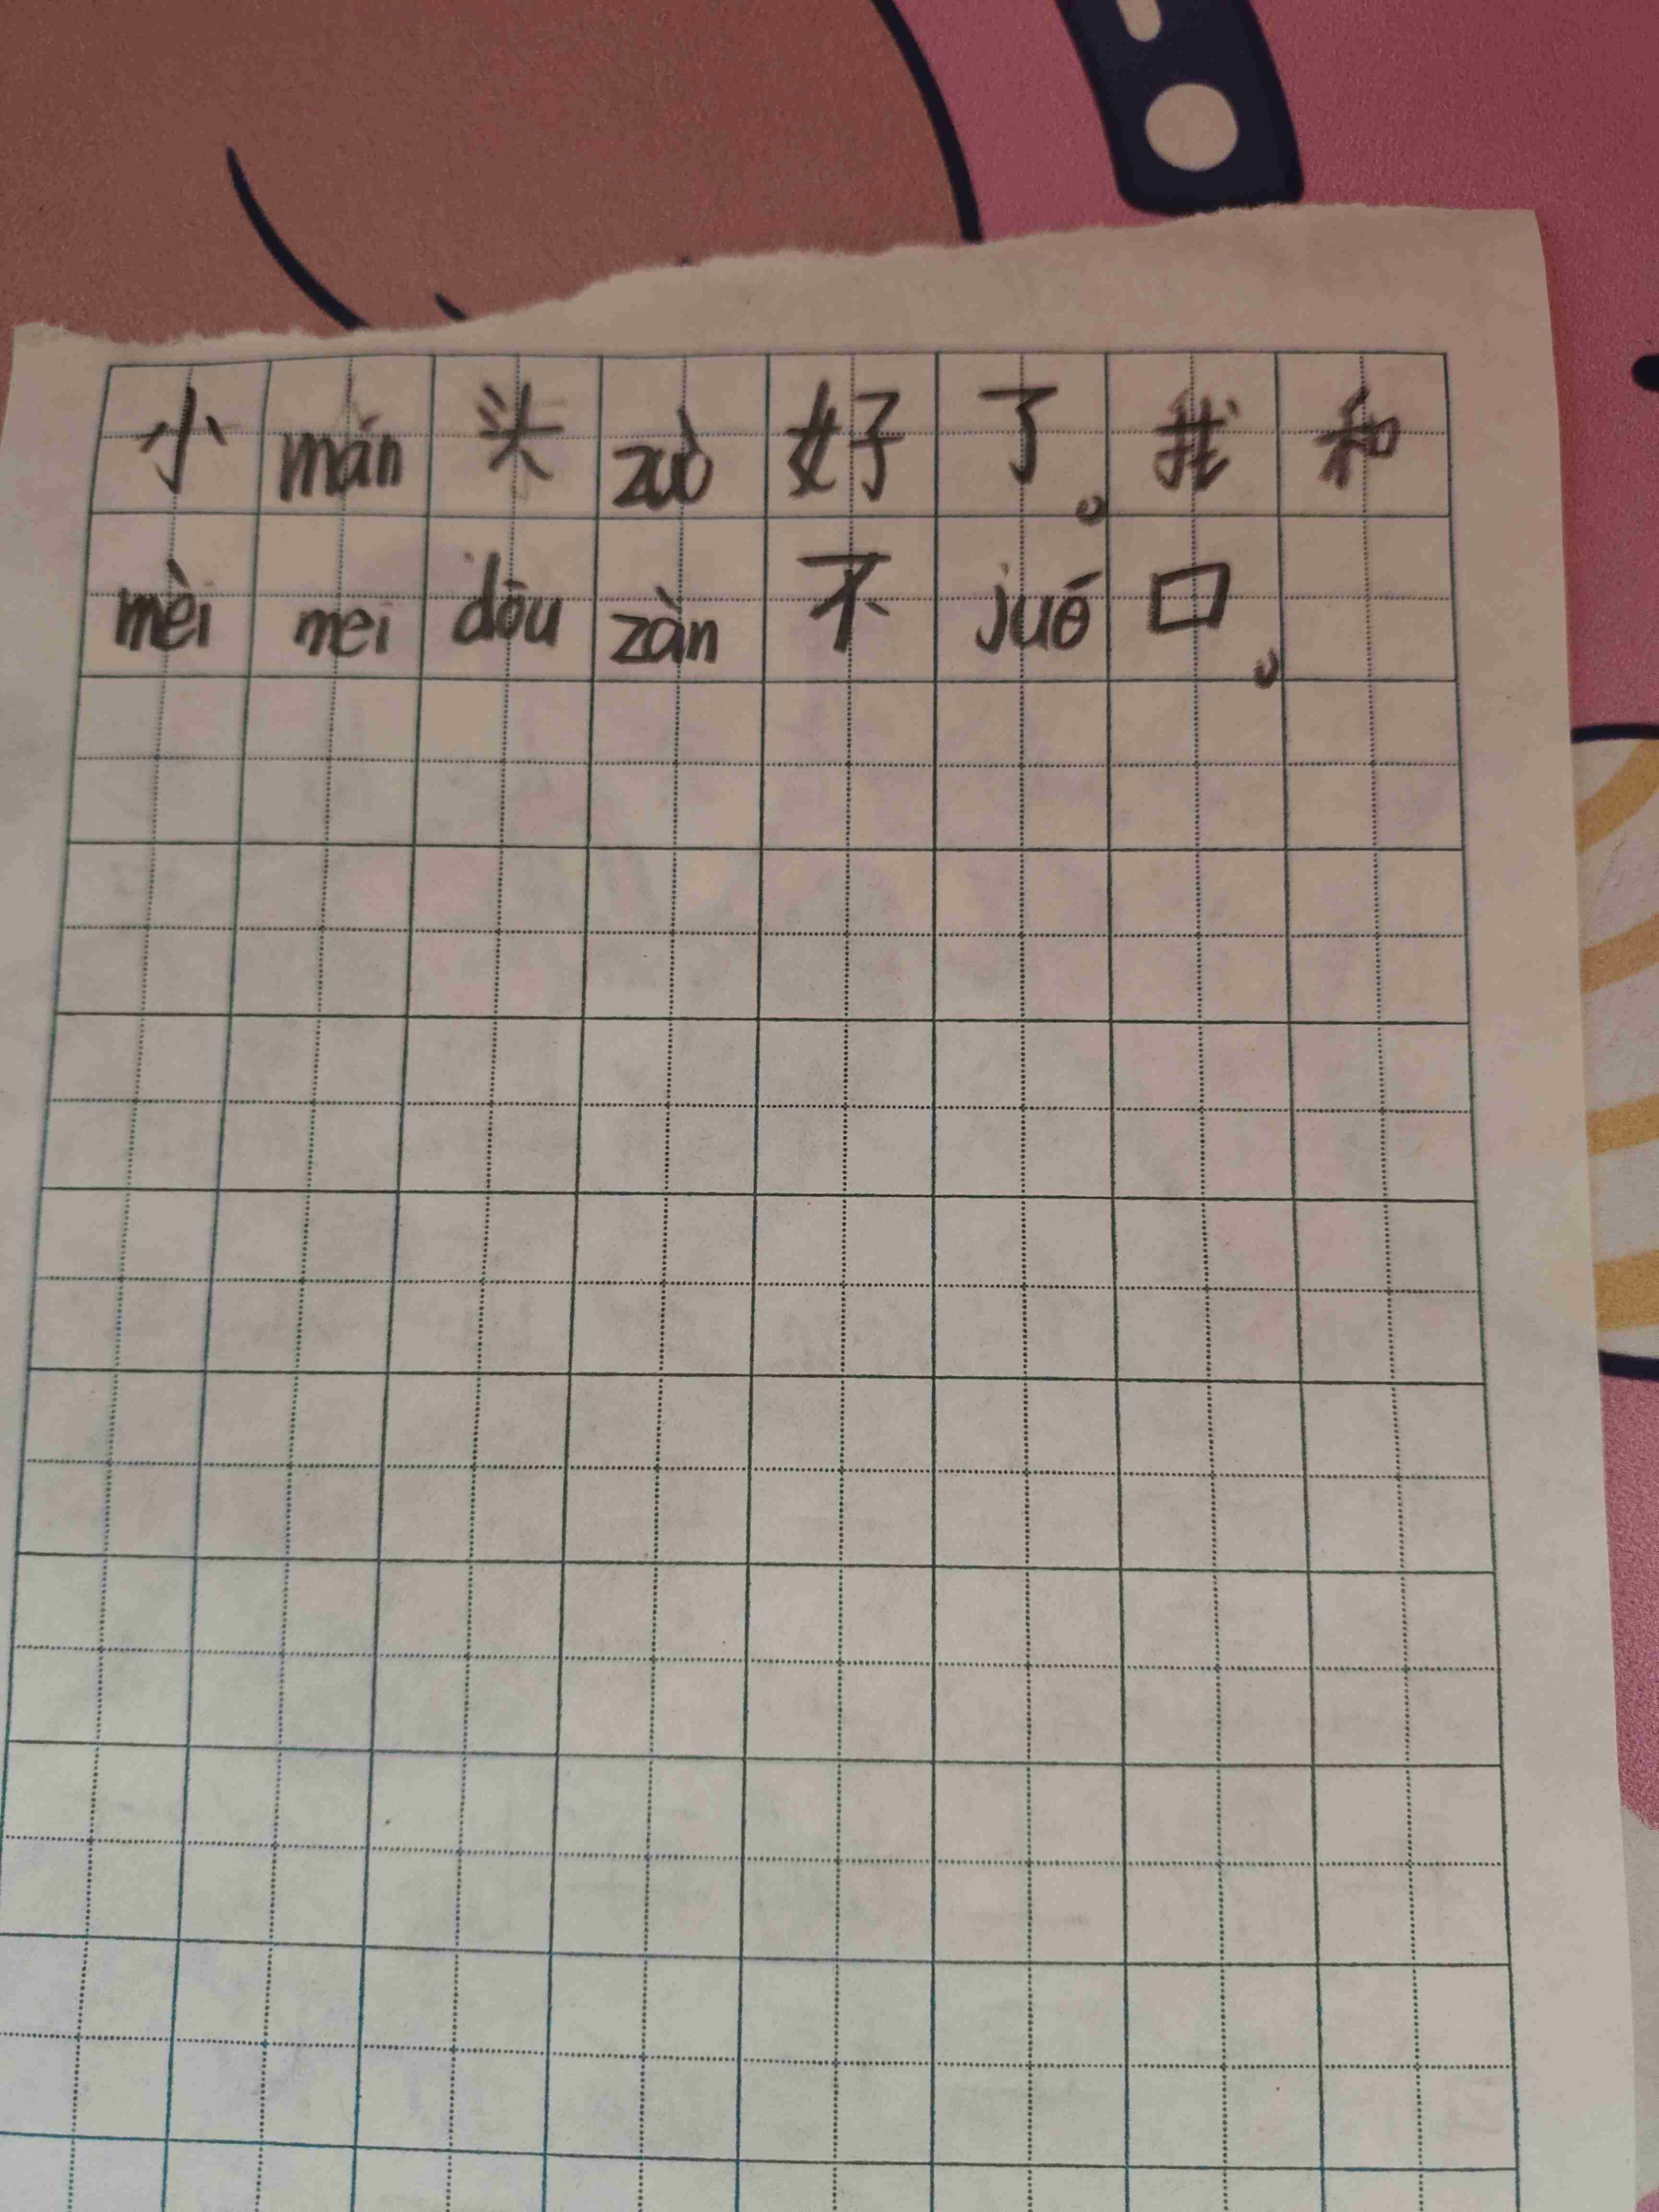 小mán头zuò好了。我和
mèi mei dōu zàn不jué口。